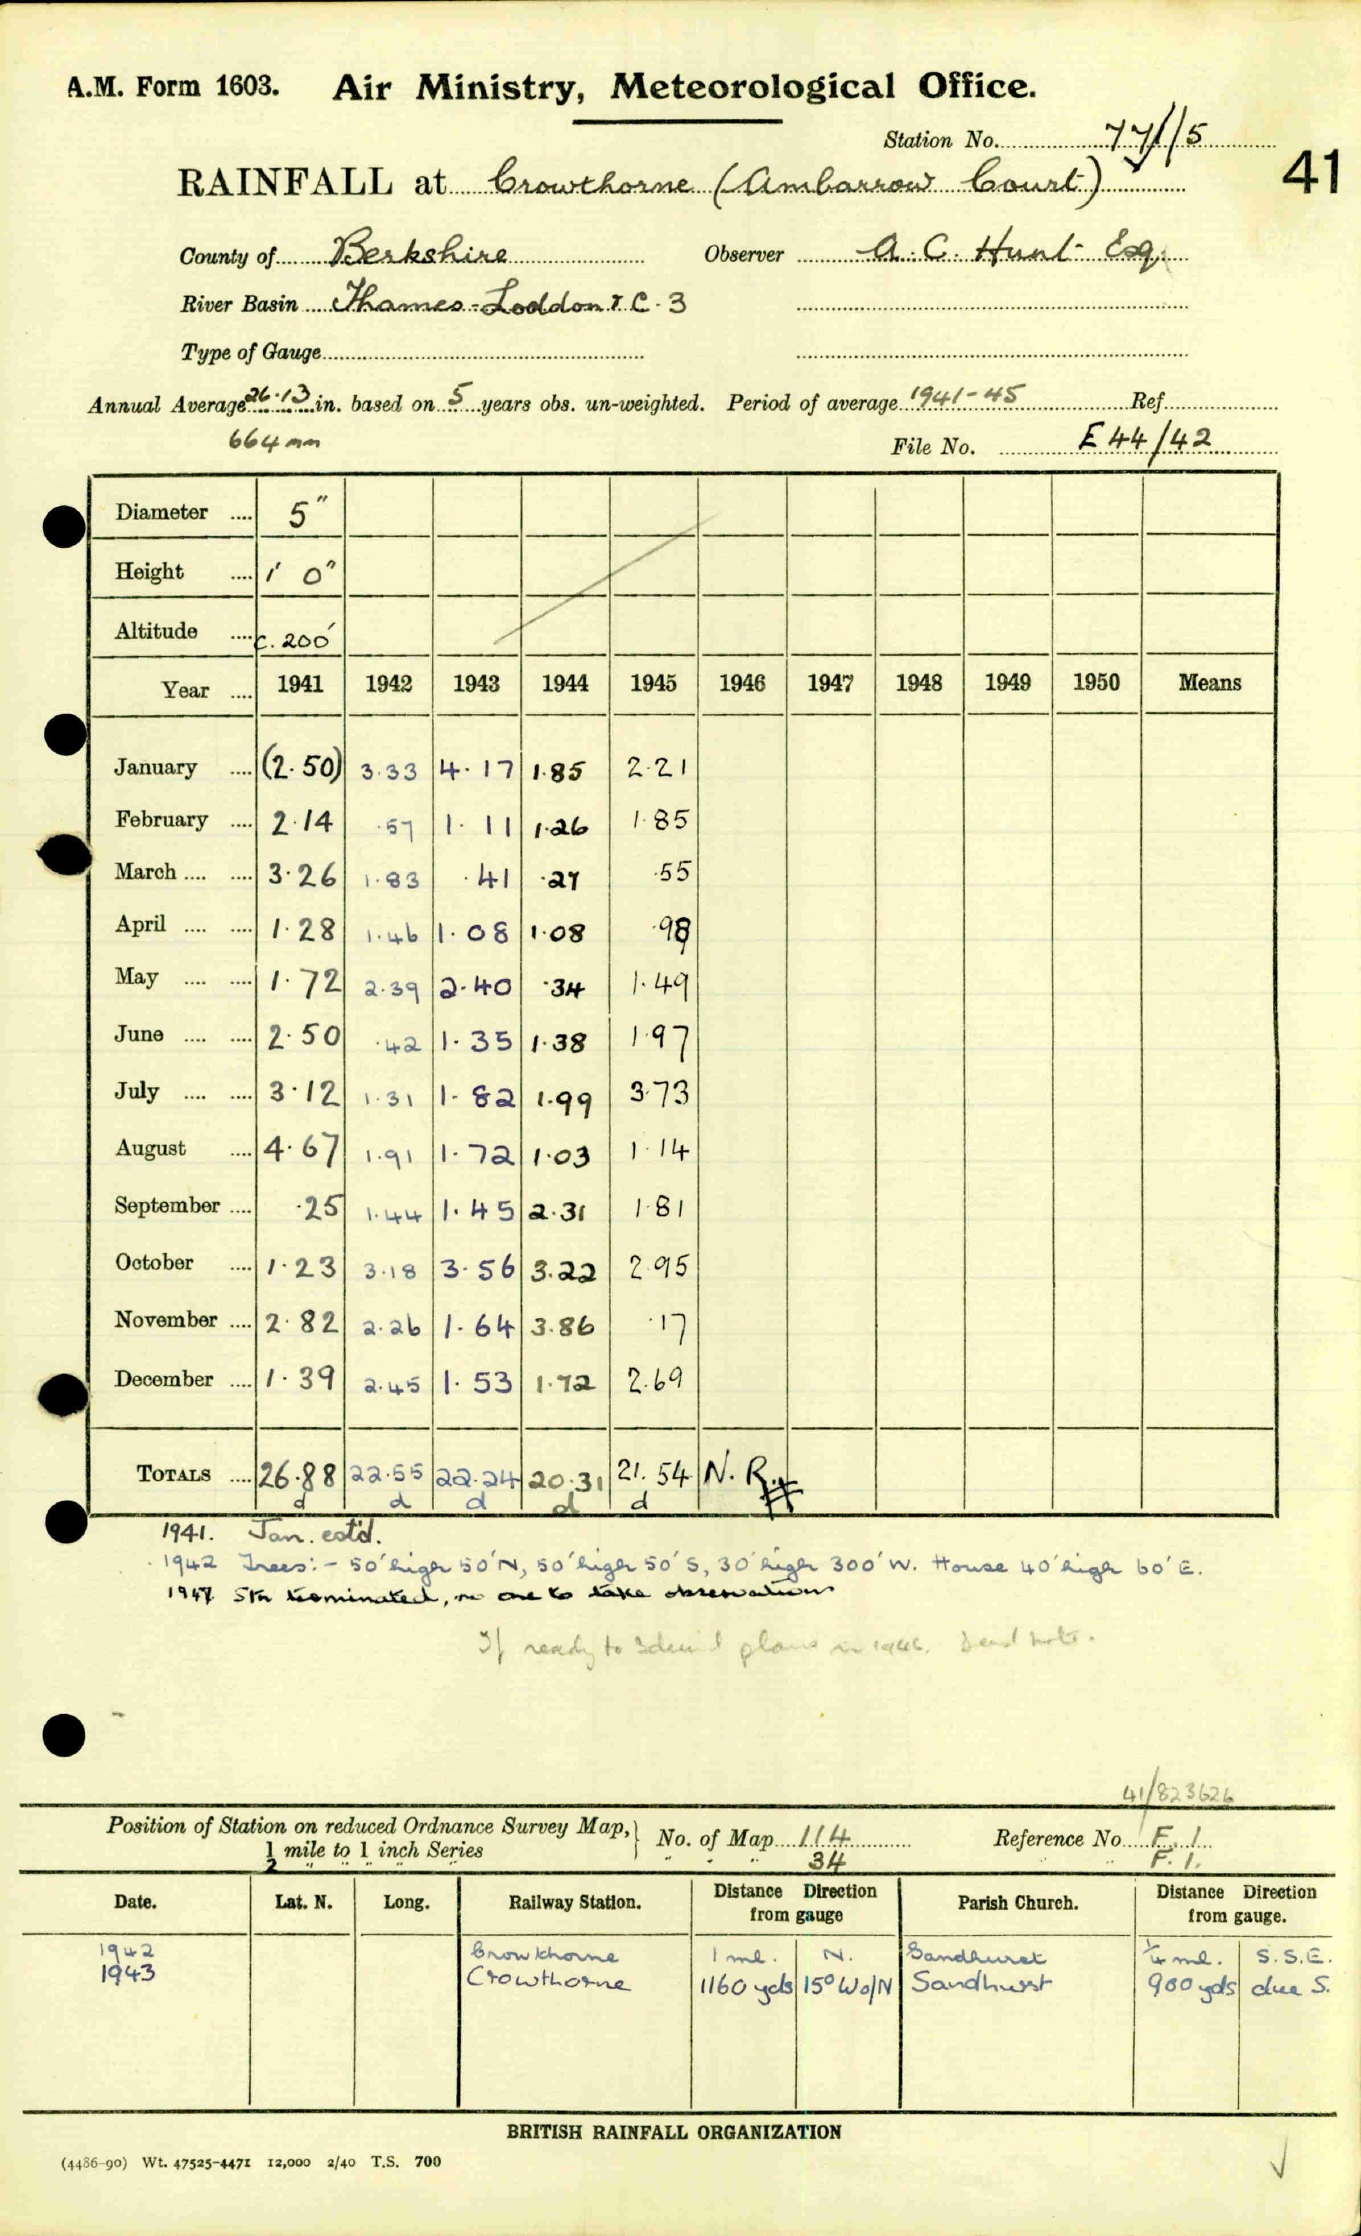 A.M. Form 1603. Air Ministry, Meteorological Office.
Station No. 771/5
41
RAINFALL at Crowthorne (Ambarrow Court)
County of Berkshire Observer A. C. Hunt Esq.
River Basin Thames-Loddon & C. 3
Type of Gauge
Annual Average 26.13 in. based on 5 years obs. un-weighted. Period of average 1941-45 Ref
664 mm File No. E44/42
Diameter .... 5"
Height .... 1' 0"
Altitude .... c. 200'
Year .... 1941 1942 1943 1944 1945 1946 1947 1948 1949 1950 Means
January .... (2.50) 3.33 4.17 1.85 2.21
February .... 2.14 .57 1.11 1.26 1.85
March .... .... 3.26 1.83 .41 .27 .55
April .... .... 1.28 1.46 1.08 1.08 .98
May .... .... 1.72 2.39 2.40 .34 1.49
June .... .... 2.50 .42 1.35 1.38 1.97
July .... .... 3.12 1.31 1.82 1.99 3.73
August .... 4.67 1.91 1.72 1.03 1.14
September .... .25 1.44 1.45 2.31 1.81
October .... 1.23 3.18 3.56 3.22 2.95
November .... 2.82 2.26 1.64 3.86 .17
December .... 1.39 2.45 1.53 1.72 2.69
TOTALS .... 26.88 22.55 22.24 20.31 21.54 N.R.
d d d d d
1941. Jan. est'd.
1942 Trees:- 50' high 50' N, 50' high 50' S, 30' high 300' W. House 40' high 60' E.
1947 Stn terminated, no one to take observations
If ready to plans in 1946. Send note.
41/823626
Position of Station on reduced Ordnance Survey Map, No. of Map 114 Reference No F. 1
1/2 mile to 1 inch Series " " " 34 " " F. 1.
Date. Lat. N. Long. Railway Station. Distance Direction from gauge Parish Church. Distance Direction from gauge.
1942 Crowthorne 1 ml. N. Sandhurst 1/4 ml. S.S.E.
1943 Crowthorne 1160 yds 15° W of N Sandhurst 900 yds due S.
BRITISH RAINFALL ORGANIZATION
(4486-90) Wt. 47525-4471 12,000 2/40 T.S. 700